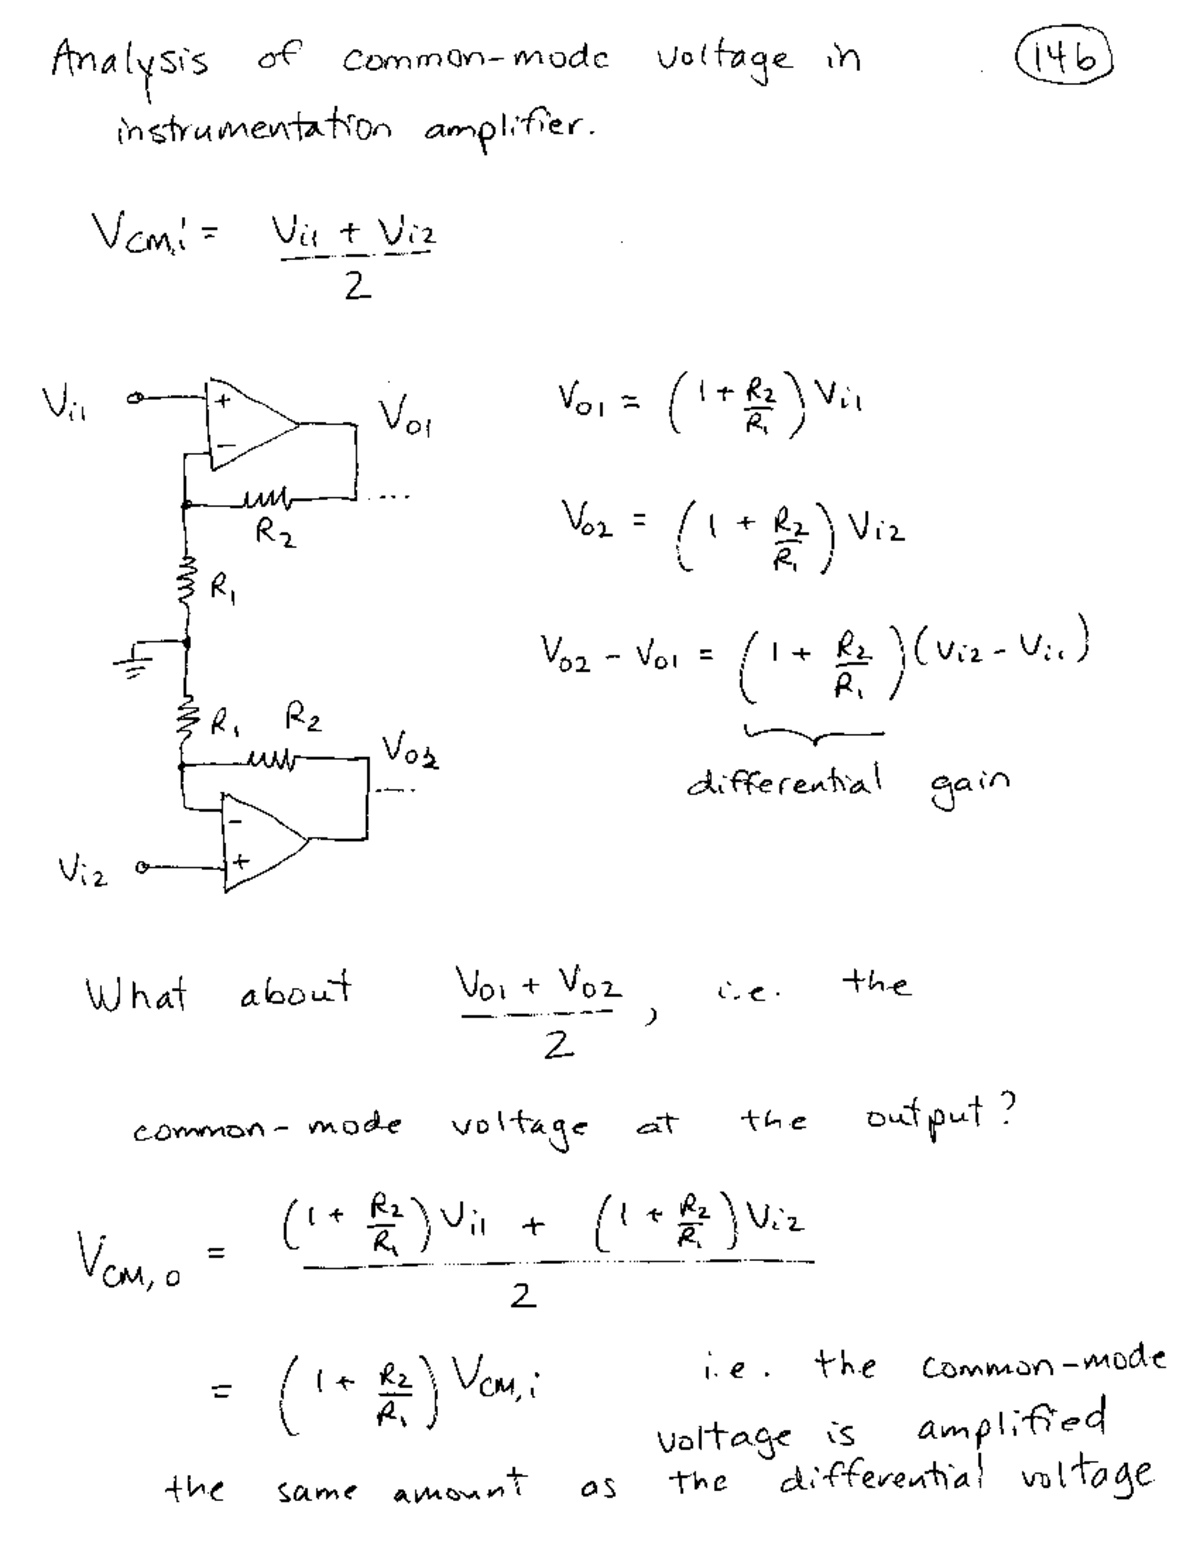 Analysis of common-mode voltage in
146
instrumentation amplifier.
V_{CM,i} = \frac{V_{i1} + V_{i2}}{2}
V_{i1} + - V_{o1}
R_2 ....
R_1
R_1 R_2
V_{o2}
....
V_{i2} - +
V_{o1} = (1 + \frac{R_2}{R_1}) V_{i1}
V_{o2} = (1 + \frac{R_2}{R_1}) V_{i2}
V_{o2} - V_{o1} = (1 + \frac{R_2}{R_1}) (V_{i2} - V_{i1})
differential gain
What about \frac{V_{o1} + V_{o2}}{2}, i.e. the
common-mode voltage at the output?
V_{CM,o} = \frac{(1 + \frac{R_2}{R_1}) V_{i1} + (1 + \frac{R_2}{R_1}) V_{i2}}{2}
= (1 + \frac{R_2}{R_1}) V_{CM,i} i.e. the common-mode
voltage is amplified
the same amount as the differential voltage